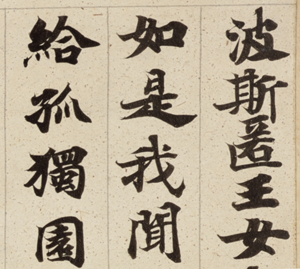 波斯匿王女
如是我聞
給孤獨園